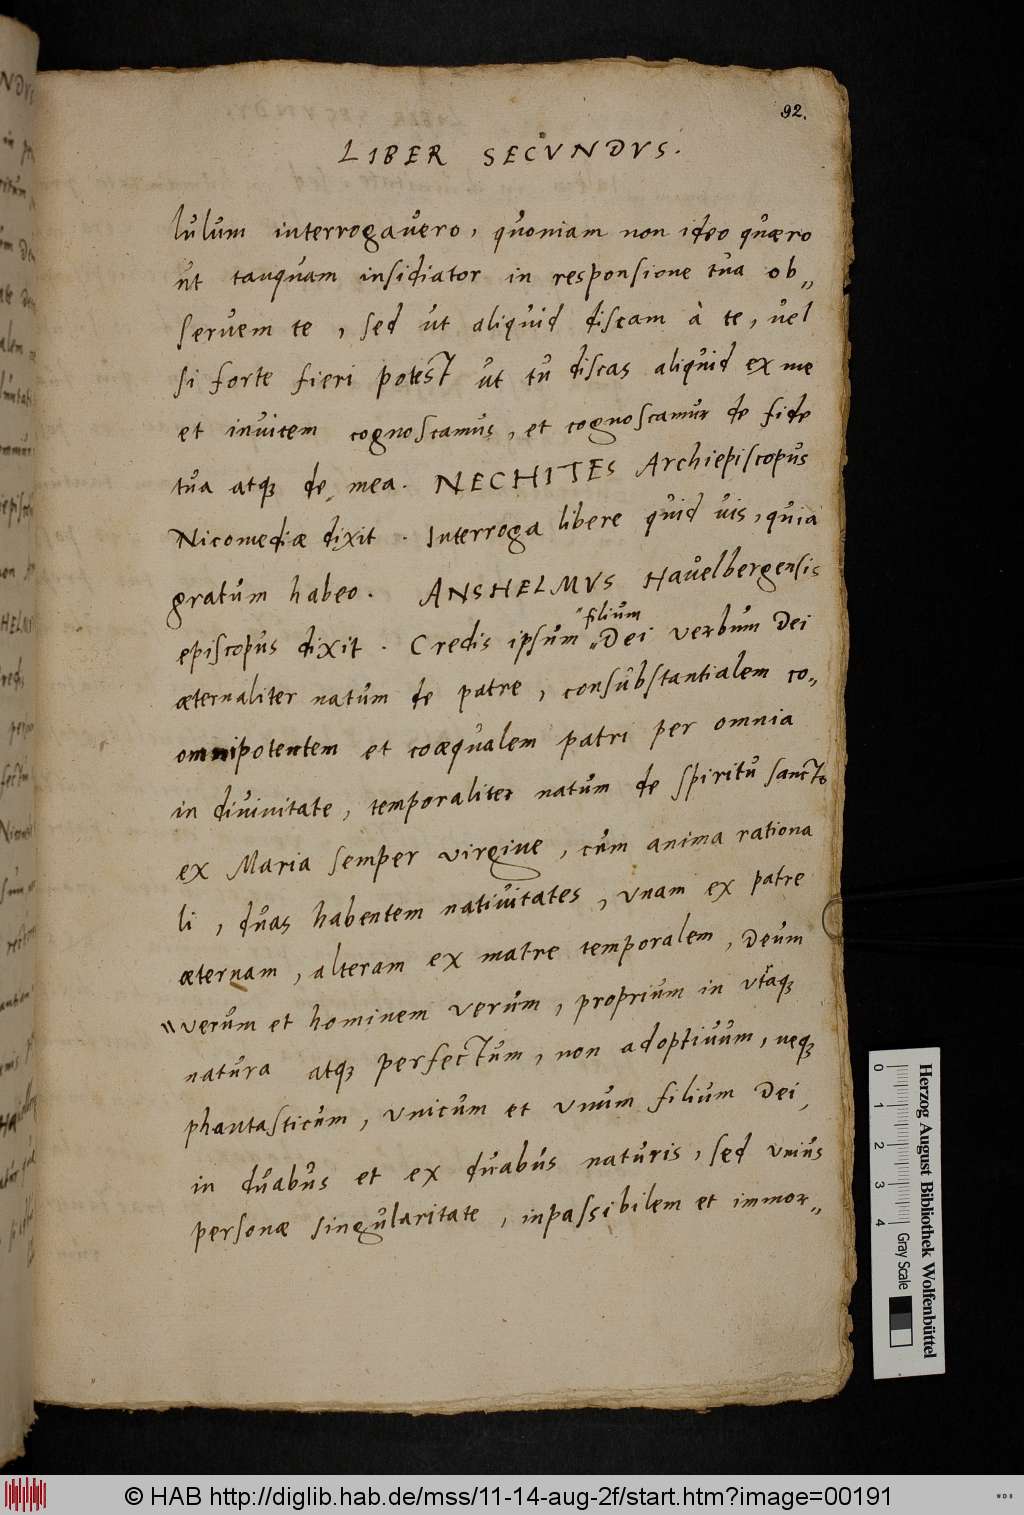 92.
LIBER SECVNDVS.
lulum interrogauero, quoniam non ideo quæro
ut tanquam insidiator in responsione tua ob„
seruem te, sed ut aliquid discam à te, uel
si forte fieri potest ut tu discas aliquid ex me
et inuicem cognoscamus, et cognoscamur de fide
tua atqȝ de mea. NECHITES Archiepiscopus
Nicomediæ dixit. Interroga libere quid uis, quia
gratum habeo. ANSHELMVS Hauelbergensis
filium
episcopus dixit. Credis ipsum „Dei verbum Dei
æternaliter natum de patre, consubstantialem co„
omnipotentem et coæqualem patri per omnia
in diuinitate, temporaliter natum de spiritu sancto
ex Maria semper virgine, cum anima rationa
li, duas habentem natiuitates, vnam ex patre
æternam, alteram ex matre temporalem, Deum
„verum et hominem verum, proprium in vtraqȝ
natura atqȝ perfectum, non adoptiuum, neqȝ
phantasticum, vnicum et vnum filium Dei,
in duabus et ex duabus naturis, sed vnius
personæ singularitate, inpassibilem et immor„
Herzog August Bibliothek Wolfenbüttel
0 1 2 3 4 Gray Scale
© HAB http://diglib.hab.de/mss/11-14-aug-2f/start.htm?image=00191